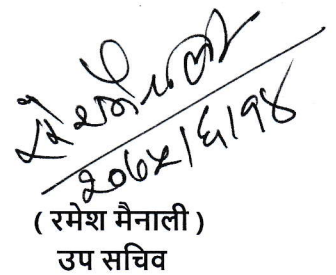 २०७५।६।१४
( रमेश मैनाली )
उप सचिव